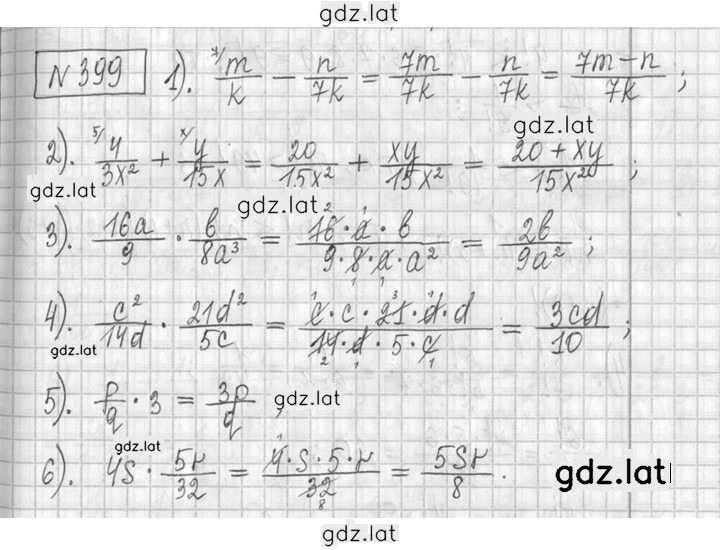 gdz.lat
№ 399 1). ⁷/m/k − n/7k = 7m/7k − n/7k = (7m−n)/7k ;
2). ⁵/4/3x² + ˣ/y/15x = 20/15x² + xy/15x² = (20+xy)/15x² ;
gdz.lat
gdz.lat
gdz.lat
3). 16a/9 · b/8a³ = (16·a·b)/(9·8·a·a²) = 2b/9a² ;
4). c²/14d · 21d²/5c = (c·c·21·d·d)/(14·d·5·c) = 3cd/10 ;
gdz.lat
5). p/q · 3 = 3p/q ;
gdz.lat
gdz.lat
6). 4s · 5r/32 = (4·s·5·r)/32 = 5sr/8 .
gdz.lat
gdz.lat